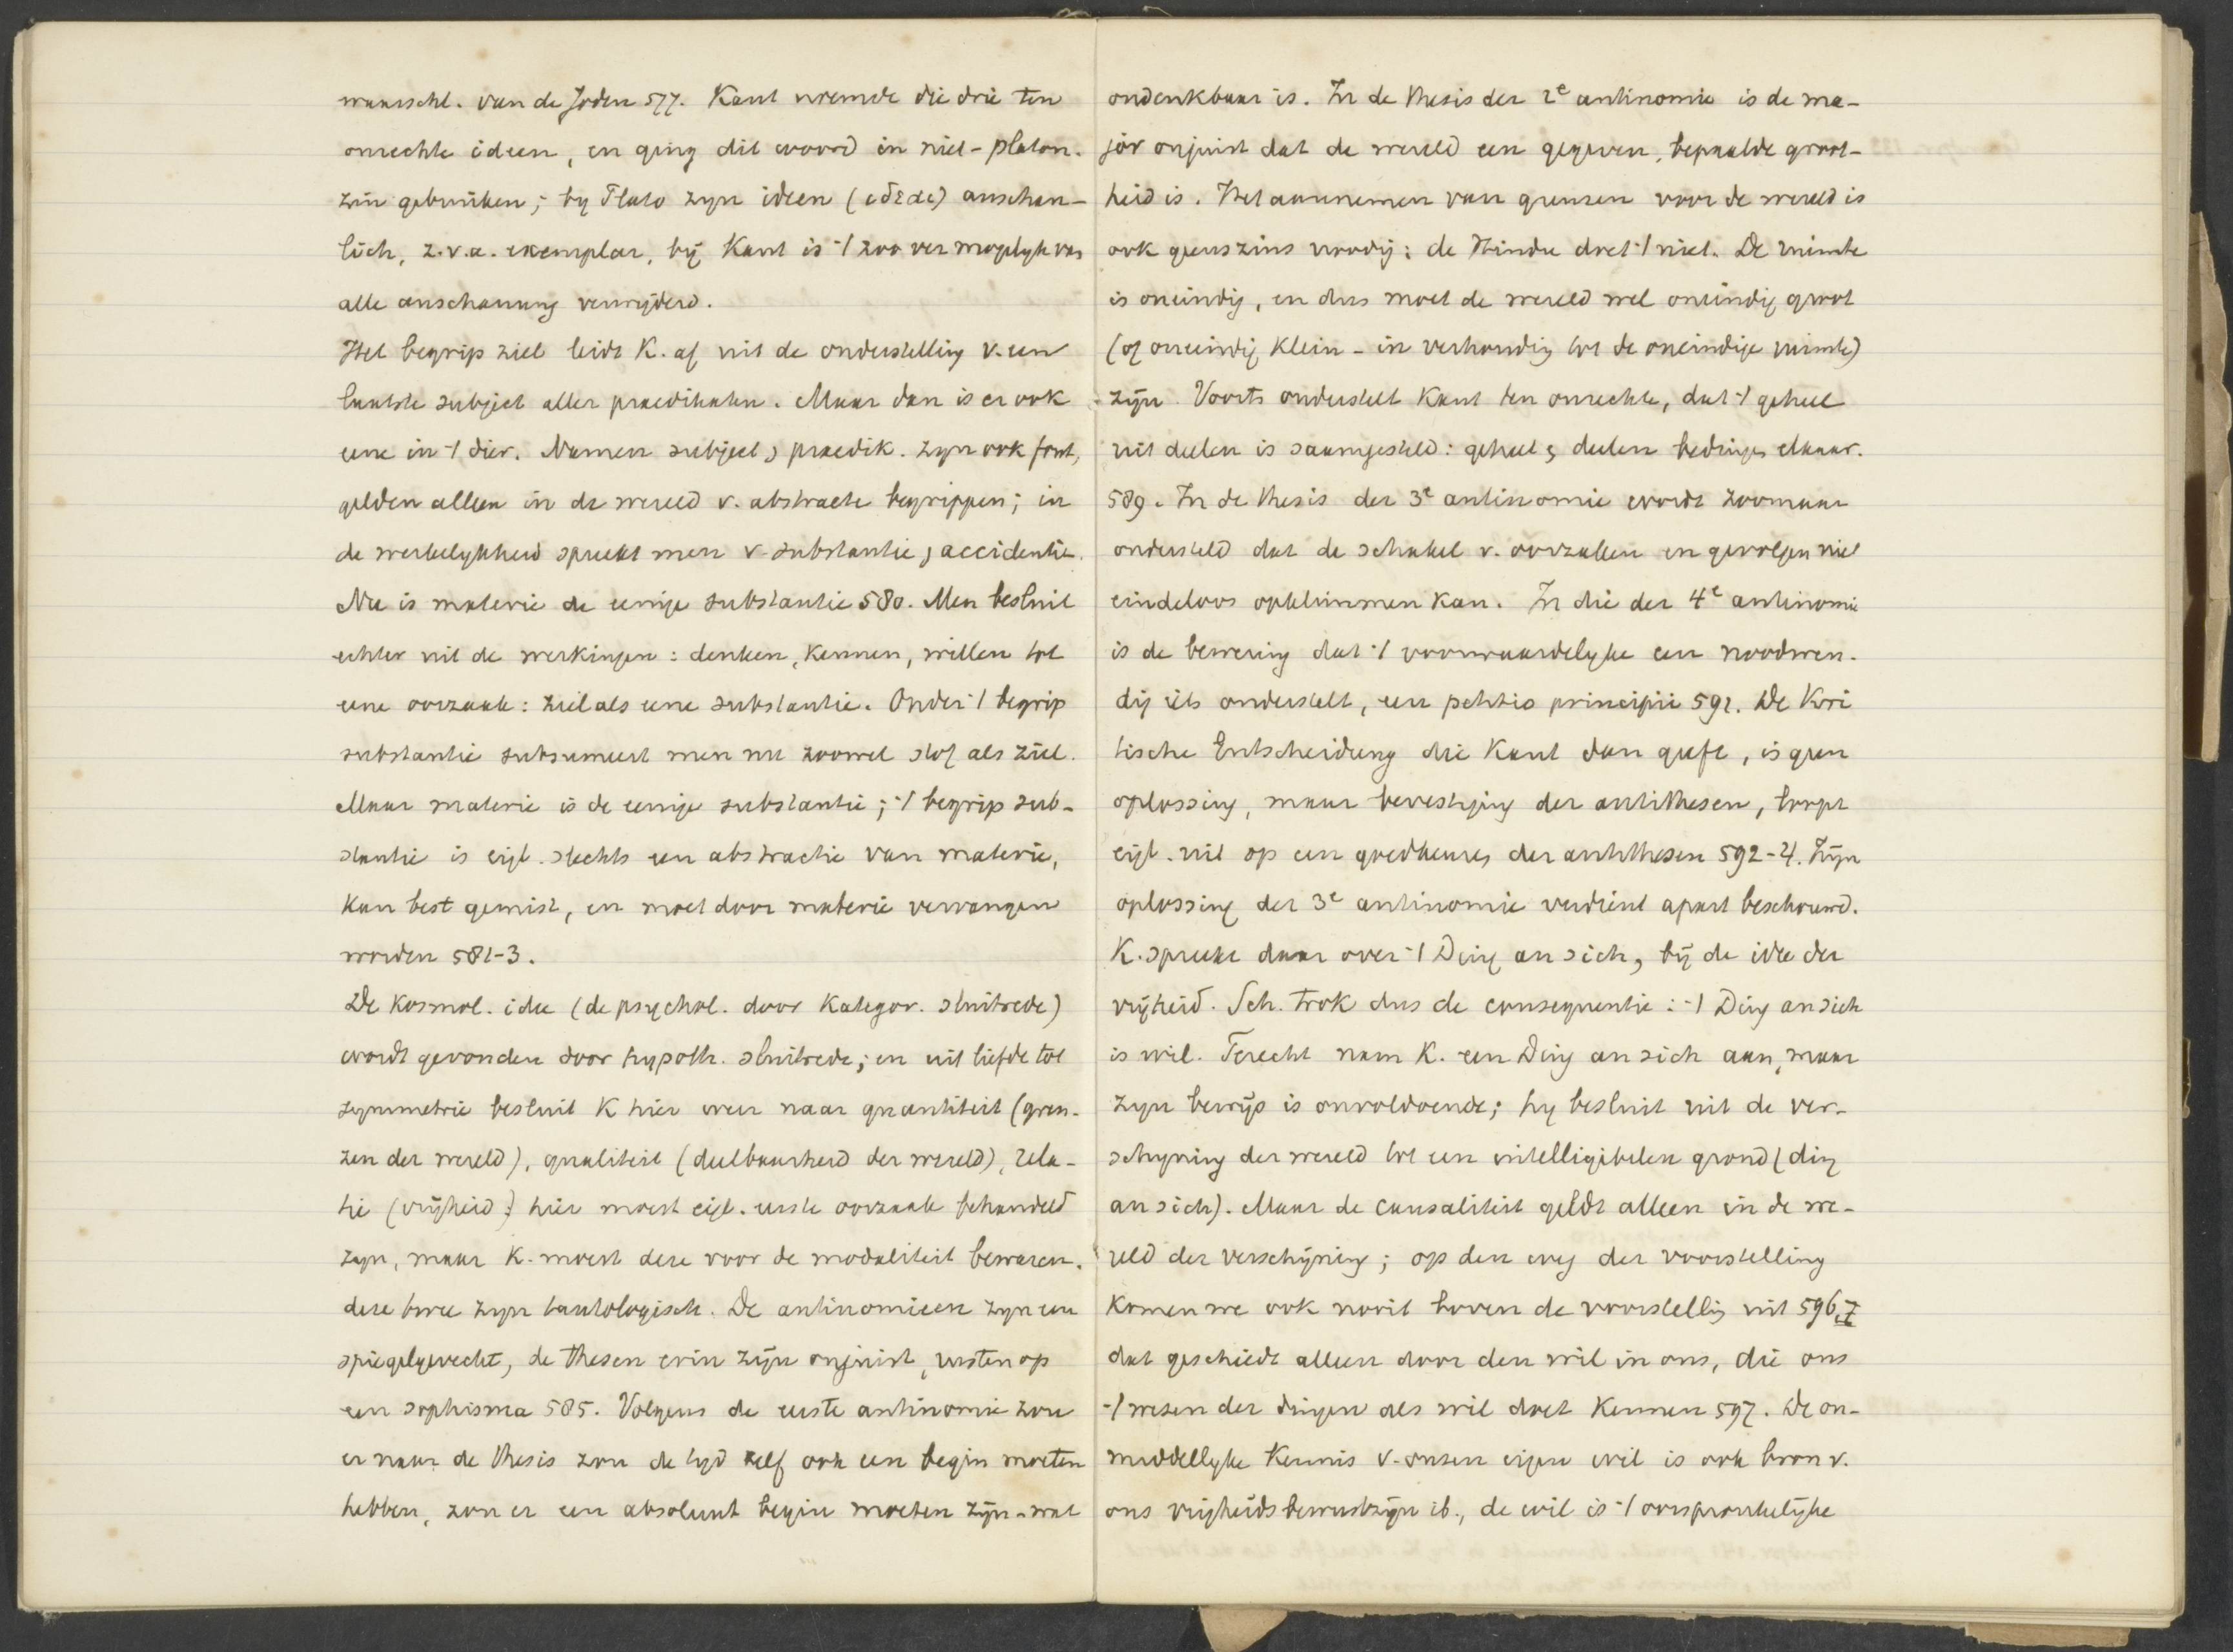 waarschl. van de Joden 577. Kant noemde die drie ten
onrechte ideen, en ging dit woord in niet-platon.
zin gebruiken; by Plato zyn ideen (εἴδεα) anschau-
lich, z.v.a. exemplar, bij Kant is ’t zoo ver mogelyk van
alle anschauung verwijderd.
Het begrip ziel leidt K. af uit de onderstelling v. een
laatste subject aller praedikaten. Maar dan is er ook
eene in ’t dier. Namen subject, praedik. zyn ook fout,
gelden alleen in de wereld v. abstracte begrippen; in
de werkelykheid spreekt men v. substantie, accidentie.
Nu is materie de eenige substantie 580. Men besluit
echter uit de werkingen: denken, kennen, willen tot
eene oorzaak: ziel als eene substantie. Onder ’t begrip
substantie subsumeert men nu zoowel stof als ziel.
Maar materie is de eenige substantie; ’t begrip sub-
stantie is eigl. slechts een abstractie van materie,
kan best gemist, en moet door materie vervangen
worden 581-3.
De kosmol. idee (de psychol. door kategor. sluitrede)
wordt gevonden door hypoth. sluitrede; en uit liefde tot
symmetrie besluit K hier weer naar quantiteit (gren-
zen der wereld), qualiteit (deelbaarheid der wereld), rela-
tie (vrijheid) hier moest eigl. eerste oorzaak behandeld
zyn, maar K. moest deze voor de modaliteit bewaren.
deze twee zyn tautologisch. De antinomieen zyn een
spiegelgevecht, de thesen erin zijn onjuist, rusten op
een sophisma 585. Volgens de eerste antinomie zou
er naar de thesis zou de tyd zelf ook een begin moeten
hebben, zou er een absoluut begin moeten zijn - wat
ondenkbaar is. In de thesis der 2e antinomie is de ma-
jor onjuist dat de wereld een gegeven, bepaalde groot-
heid is. Het aannemen van grenzen voor de wereld is
ook geenszins noodig: de Hindu doet ’t niet. De ruimte
is oneindig, en dus moet de wereld wel oneindig groot
(of oneindig klein - in verhouding tot de oneindige ruimte)
zijn. Voorts onderstelt Kant ten onrechte, dat ’t geheel
uit deelen is saamgesteld: geheel & deelen bedingen elkaar.
589. In de thesis der 3e antinomie wordt zoomaar
ondersteld dat de schakel v. oorzaken en gevolgen niet
eindeloos opklimmen kan. In die der 4e antinomie
is de bewering dat ’t voorwaardelyke een noodwen-
dig iets onderstelt, een petitio principii 591. De Kri
tische Entscheidung die Kant dan geeft, is geen
oplossing, maar bevestiging der antithesen, loopt
eigl. uit op een goedkeuring der antithesen 592-4. Zijn
oplossing der 3e antinomie verdient apart beschouwd.
K. spreekt daar over ’t Ding an sich, bij de idee der
vrijheid. Sch. trok dus de consequentie: ’t Ding an sich
is wil. Terecht nam K. een Ding an sich aan, maar
zyn bewijs is onvoldoende; hy besluit uit de ver-
schyning der wereld tot een intelligibelen grond (ding
an sich). Maar de causaliteit geldt alleen in de we-
reld der verschijning; op den weg der voorstelling
komen we ook nooit boven de voorstellig uit 596,7
dat geschiedt alleen door den wil in ons, die ons
’t wezen der dingen als wil doet kennen 597. De on-
middellyke kennis v. onzen eigen wil is ook bron v.
ons vrijheidsbewustzijn ib., de wil is ’t oorspronkelijke